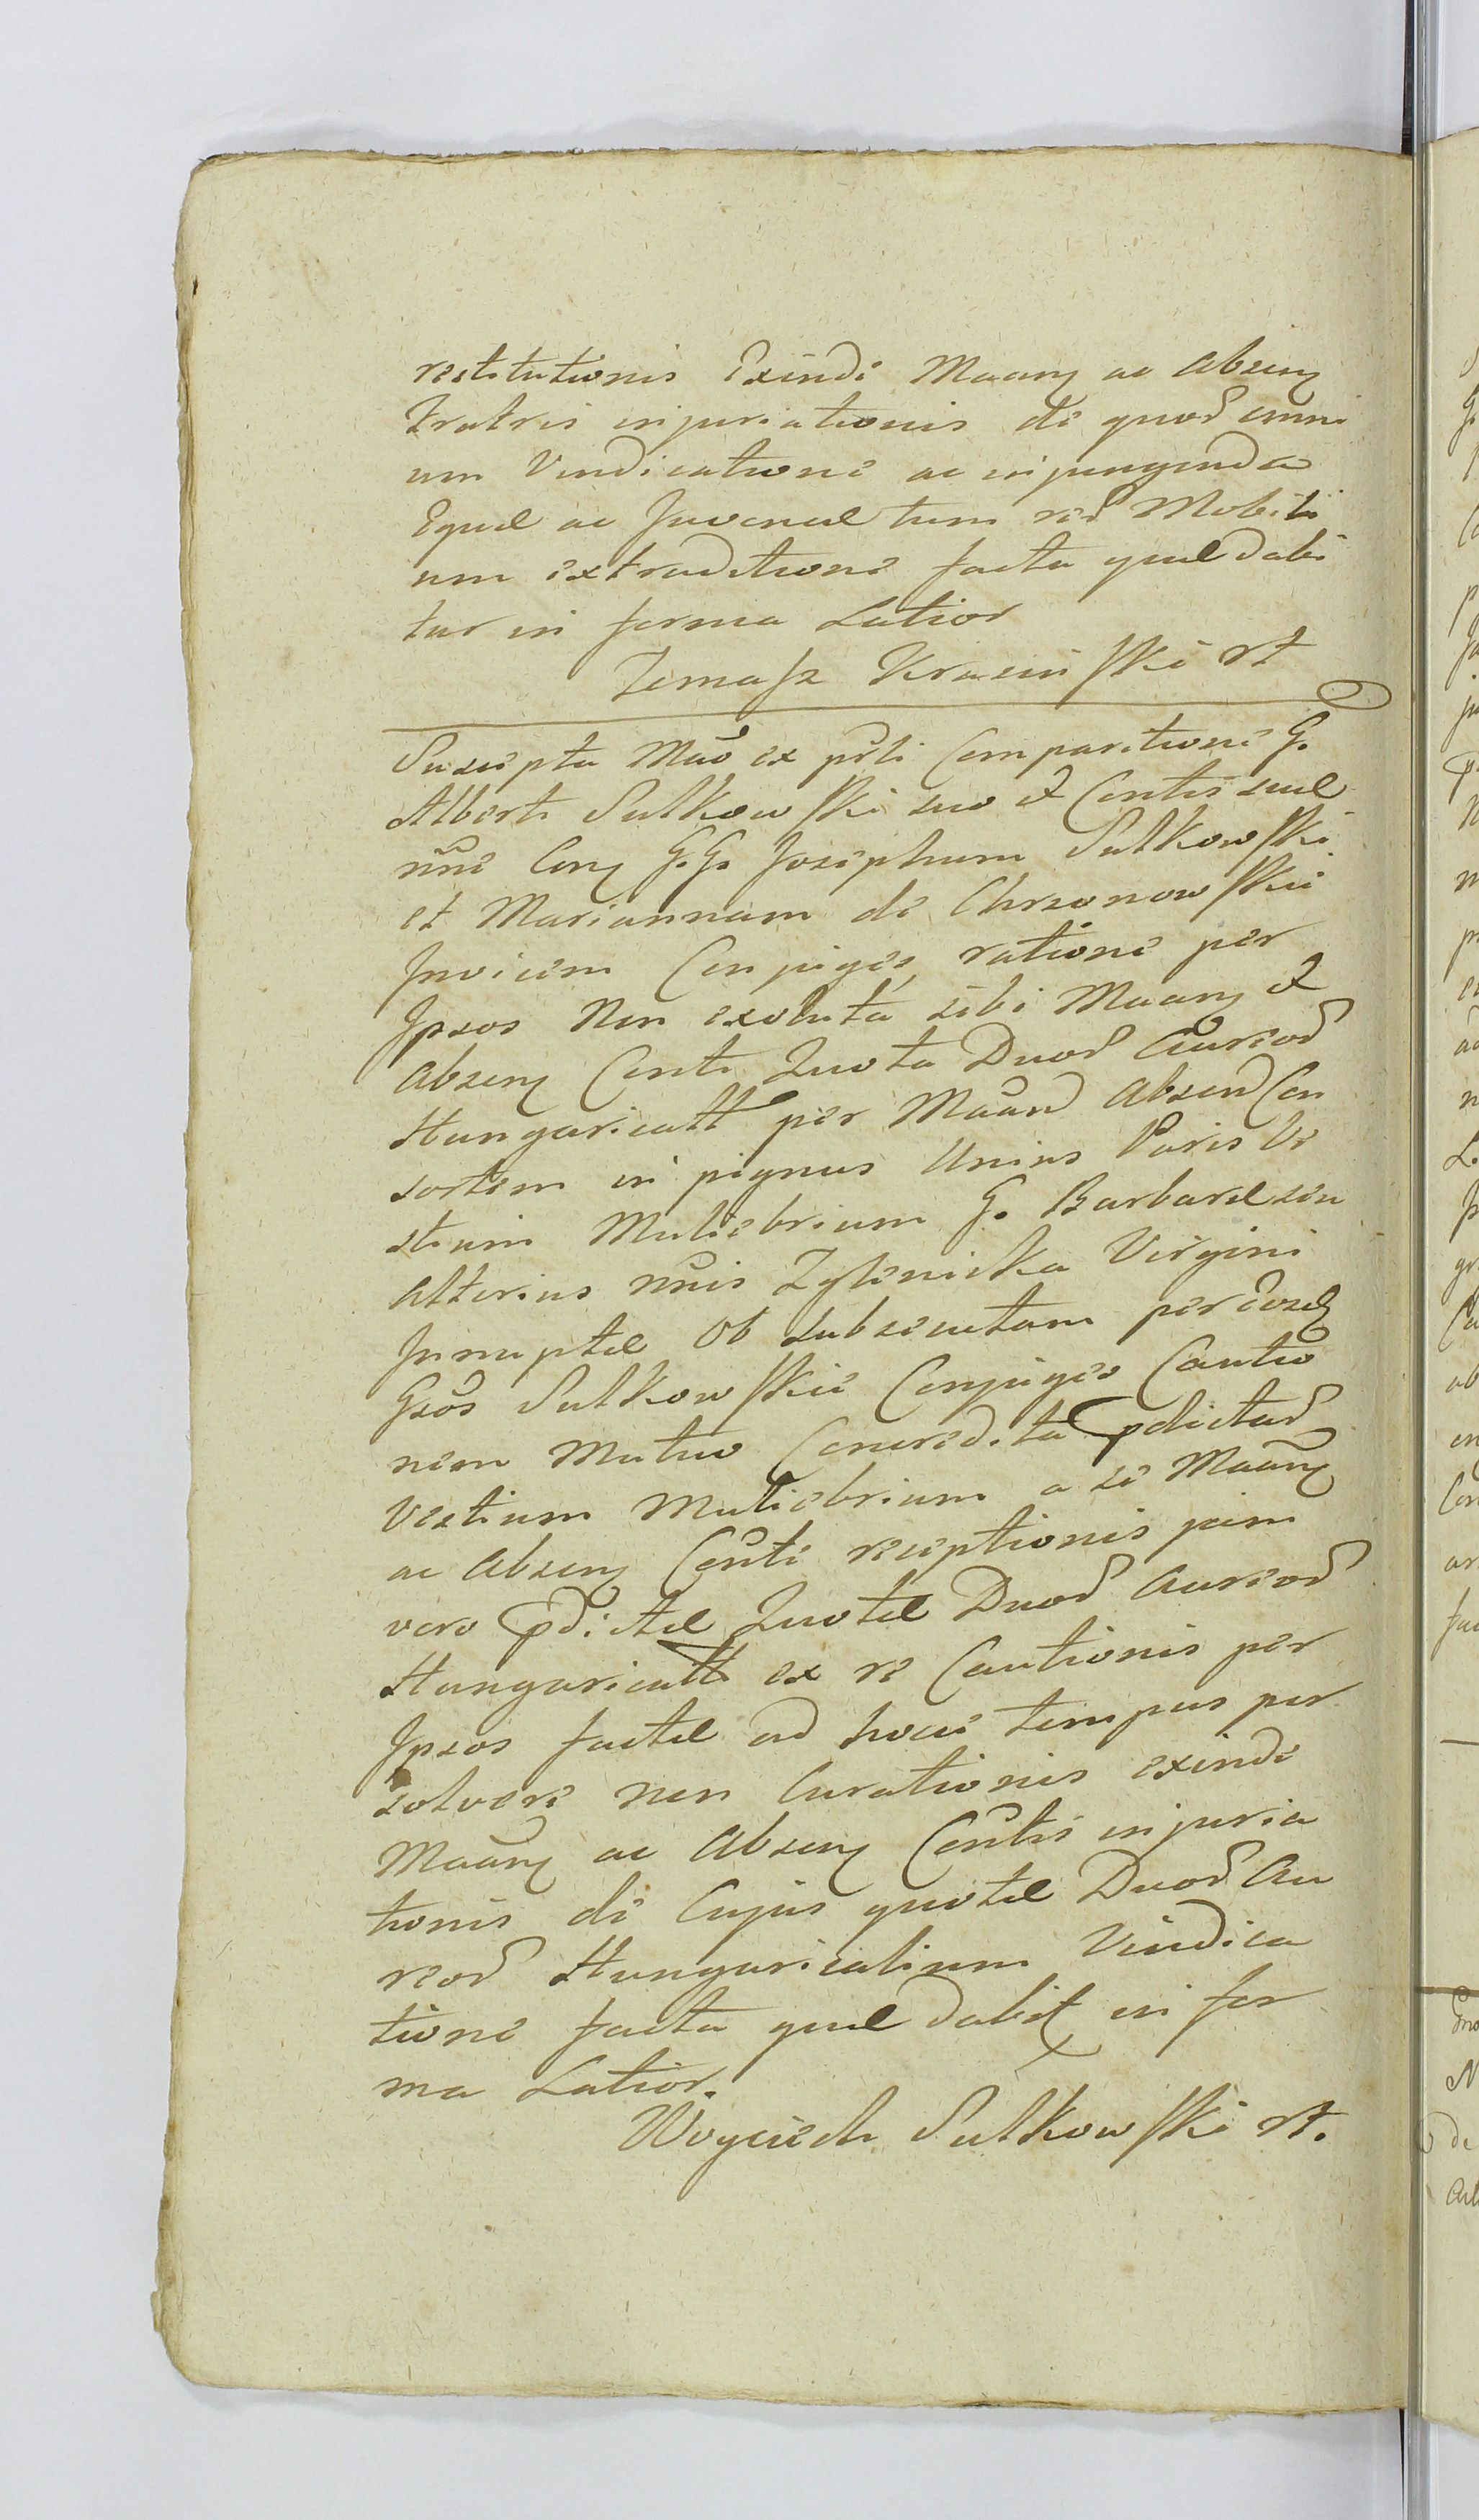 restitutionis Exinde Maanq ac absenq
Fratris injuriationis de quor̃ omni
um Vindicatione ac injungenda
Equæ ac Juvencæ tum rer̃ Mobili
um extraditione facta quæ dabi
tur in forma Latior
Tomasz Krasiński A
Suscepta Mão ex pr̃li Comparitione G.
Alberti Sulkowski suo et Contis suæ
nñe Conq G.G. Josephum Sulkowski
et Mariannam de Chrzonowskie
Invicem Conjuges, ratione per
Ipsos Non exoluta sibi Maanq et
absenq Conti Quota Duor̃ Aureor̃
Hungaricall per Maan̄ Absen̄ Con
sortem in pignus Unius Paris Ve
stium Muliebrium G. Barbaræ seu
alterius nñis Zglenicka Virgini
Innuptæ Ob subsecutam per Eosdȩ
Gsõs Sulkowskie Conjuges Cautio
nem Mutuo Concredita pdictar̃
Vestium Muliebrium a se Maanq
ac absenq Conti receptionis jam
vero pdictæ Quotæ Duor̃ Aureor̃
Hungaricall ex re Cautionis per
Ipsos factæ ad hocce tempus per
solvere non Curationis exinde
Maanq ac absenq Contis injuria
tionis de Cujus quotæ Duor̃ Au
reor̃ Hungaricalium Vindica
tione facta quæ dabit in for
ma Latior.
Woyciech Sulkowski A.